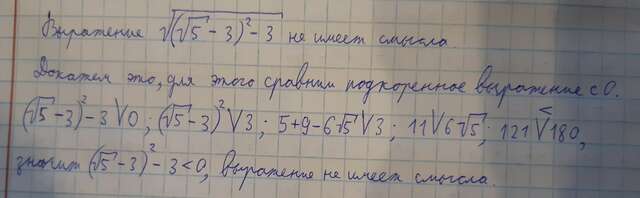 Выражение √((√5 - 3)² - 3) не имеет смысла.
Докажем это, для этого сравним подкоренное выражение с 0.
(√5 - 3)² - 3 V 0 ; (√5 - 3)² V 3 ; 5 + 9 - 6√5 V 3 ; 11 V 6√5 ; 121 V< 180,
значит (√5 - 3)² - 3 < 0, выражение не имеет смысла.